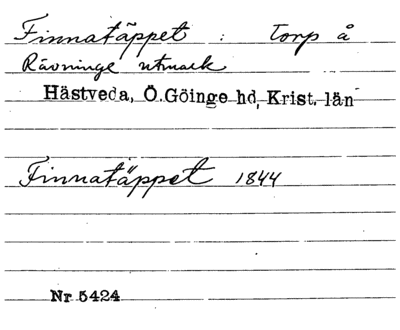 Finnatäppet : Torp å
Rävninge utmark
Hästveda, Ö.Göinge hd, Krist. län
Finnatäppet 1844
Nr 5424